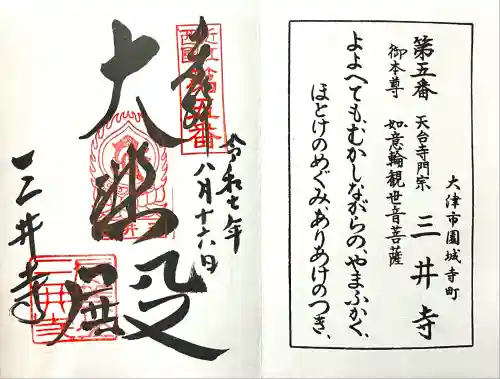 大津市園城寺町
第五番 天台寺門宗 三井寺
御本尊 如意輪観世音菩薩
よよへても、むかしながらの、やまふかく、
ほとけのめぐみ、ありあけのつき、
令和七年
八月十六日
奉拝
近江
西国
第五番
大悲殿
三井寺